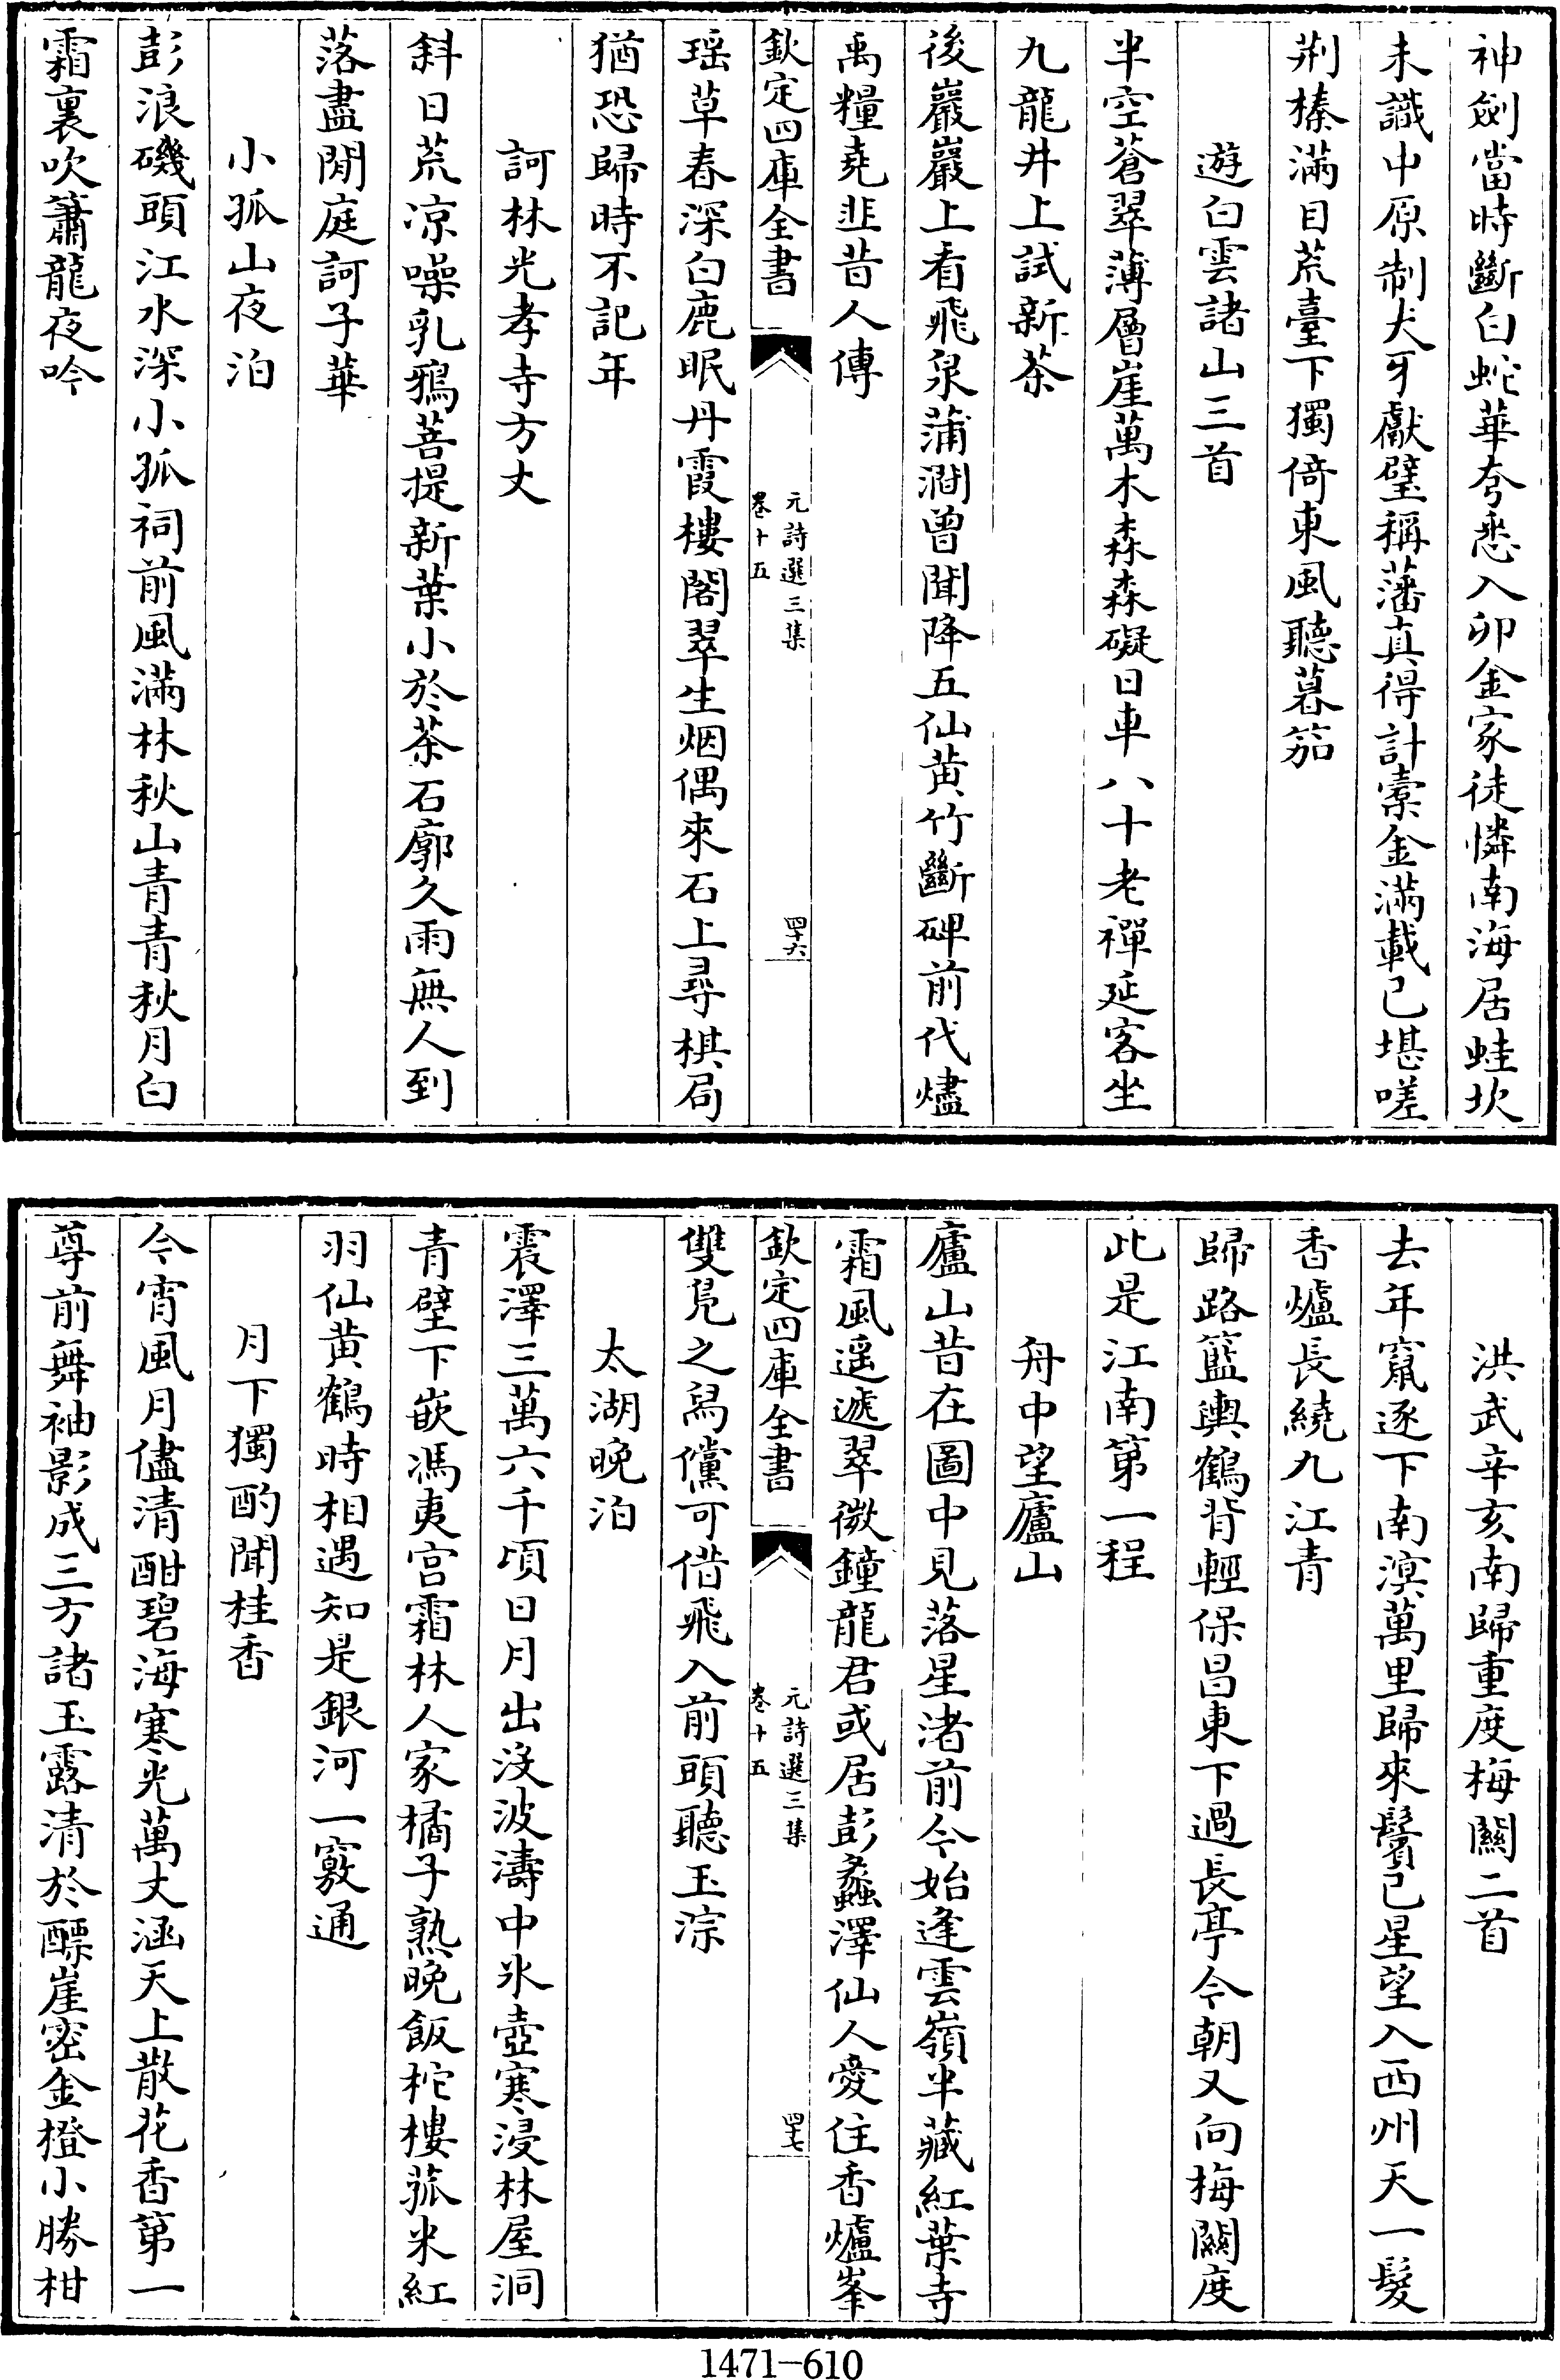 神劍當時斷白蛇華夸悉入卯金家徒憐南海居蛙坎
未識中原制犬牙獻璧稱藩真得計橐金滿載已堪嗟
荆榛滿目荒臺下獨倚東風聽暮笳
遊白雲諸山三首
半空蒼翠薄層崖萬木森森礙日車八十老禪延客坐
九龍井上試新茶
後巖巖上看飛泉蒲澗曾聞降五仙黄竹斷碑前代燼
禹糧堯韭昔人傳
欽定四庫全書
元詩選三集
卷十五
四十六
瑶草春深白鹿眠丹霞樓閣翠生烟偶來石上尋棋局
猶恐歸時不記年
訶林光孝寺方丈
斜日荒凉噪乳鴉菩提新葉小於茶石廓久雨無人到
落盡閒庭訶子華
小孤山夜泊
彭浪磯頭江水深小孤祠前風滿林秋山青青秋月白
霜裏吹簫龍夜吟
洪武辛亥南歸重度梅關二首
去年竄逐下南溟萬里歸來鬢已星望入西州天一髮
香爐長繞九江青
歸路籃輿鶴背輕保昌東下過長亭今朝又向梅關度
此是江南第一程
舟中望廬山
廬山昔在圖中見落星渚前今始逢雲嶺半藏紅葉寺
霜風遥遞翠微鐘龍君或居彭蠡澤仙人愛住香爐峯
欽定四庫全書
元詩選三集
卷十五
四十七
雙鳬之舄儻可借飛入前頭聽玉淙
太湖晚泊
震澤三萬六千頃日月出没波濤中氷壺寒浸林屋洞
青壁下嵌馮夷宫霜林人家橘子熟晚飯柁樓菰米紅
羽仙黄鶴時相遇知是銀河一竅通
月下獨酌聞桂香
今宵風月儘清酣碧海寒光萬丈涵天上散花香第一
尊前舞袖影成三方諸玉露清於醥崖宻金橙小勝柑
1471-610